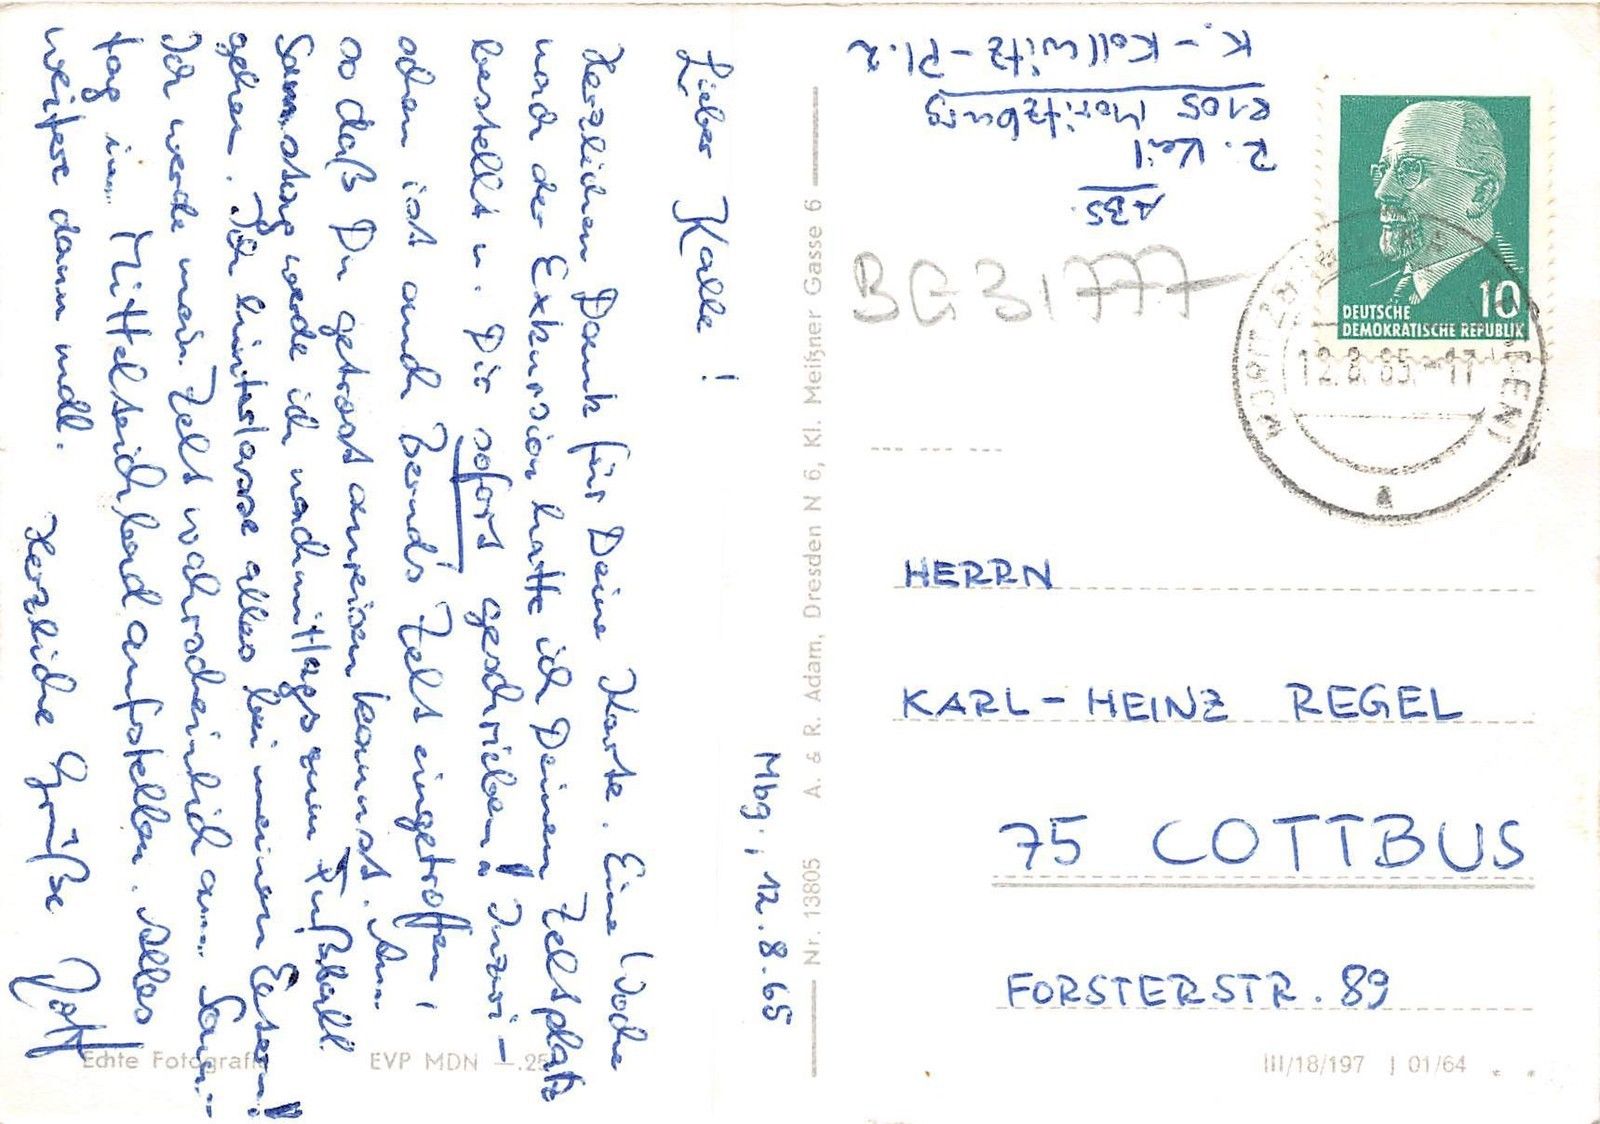 Mbg., 12.8.65
Lieber Kalle!
Herzlichen Dank für Deine Karte. Eine Woche
nach der Exkursion hatte ich Deinen Zeltplatz
bestellt u. Dir sofort geschrieben! Inzwi-
schen ist auch Bernds Zelt eingetroffen,
so daß Du getrost anreisen kannst. Am
Samstag werde ich nachmittags zum Fußball
gehen. Ich hinterlasse alles bei meinen Eltern!
Ich werde mein Zelt wahrscheinlich am Sonn-
tag im Mittelteichbad aufstellen. Alles
weitere dann mdl.
Herzliche Grüße
Echte Fotografie
EVP MDN —.25
Nr. 13805 A. & R. Adam, Dresden N 6, Kl. Meißner Gasse 6
ABS.
R. Keil
8105 Moritzburg
K.-Kollwitz-Pl. 2
BGB1777
10
DEUTSCHE
DEMOKRATISCHE REPUBLIK
12.8.65.-17
a
HERRN
KARL-HEINZ REGEL
75 COTTBUS
FORSTERSTR. 89
III/18/197 J 01/64